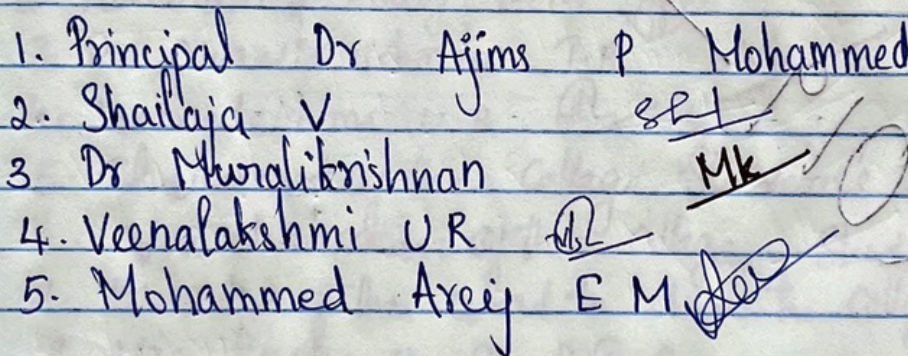 1. Principal Dr Ajims P Mohammed
2. Shailaja V
3 Dr Muralikrishnan Mk
4. Veenalakshmi U R
5. Mohammed Areij E M